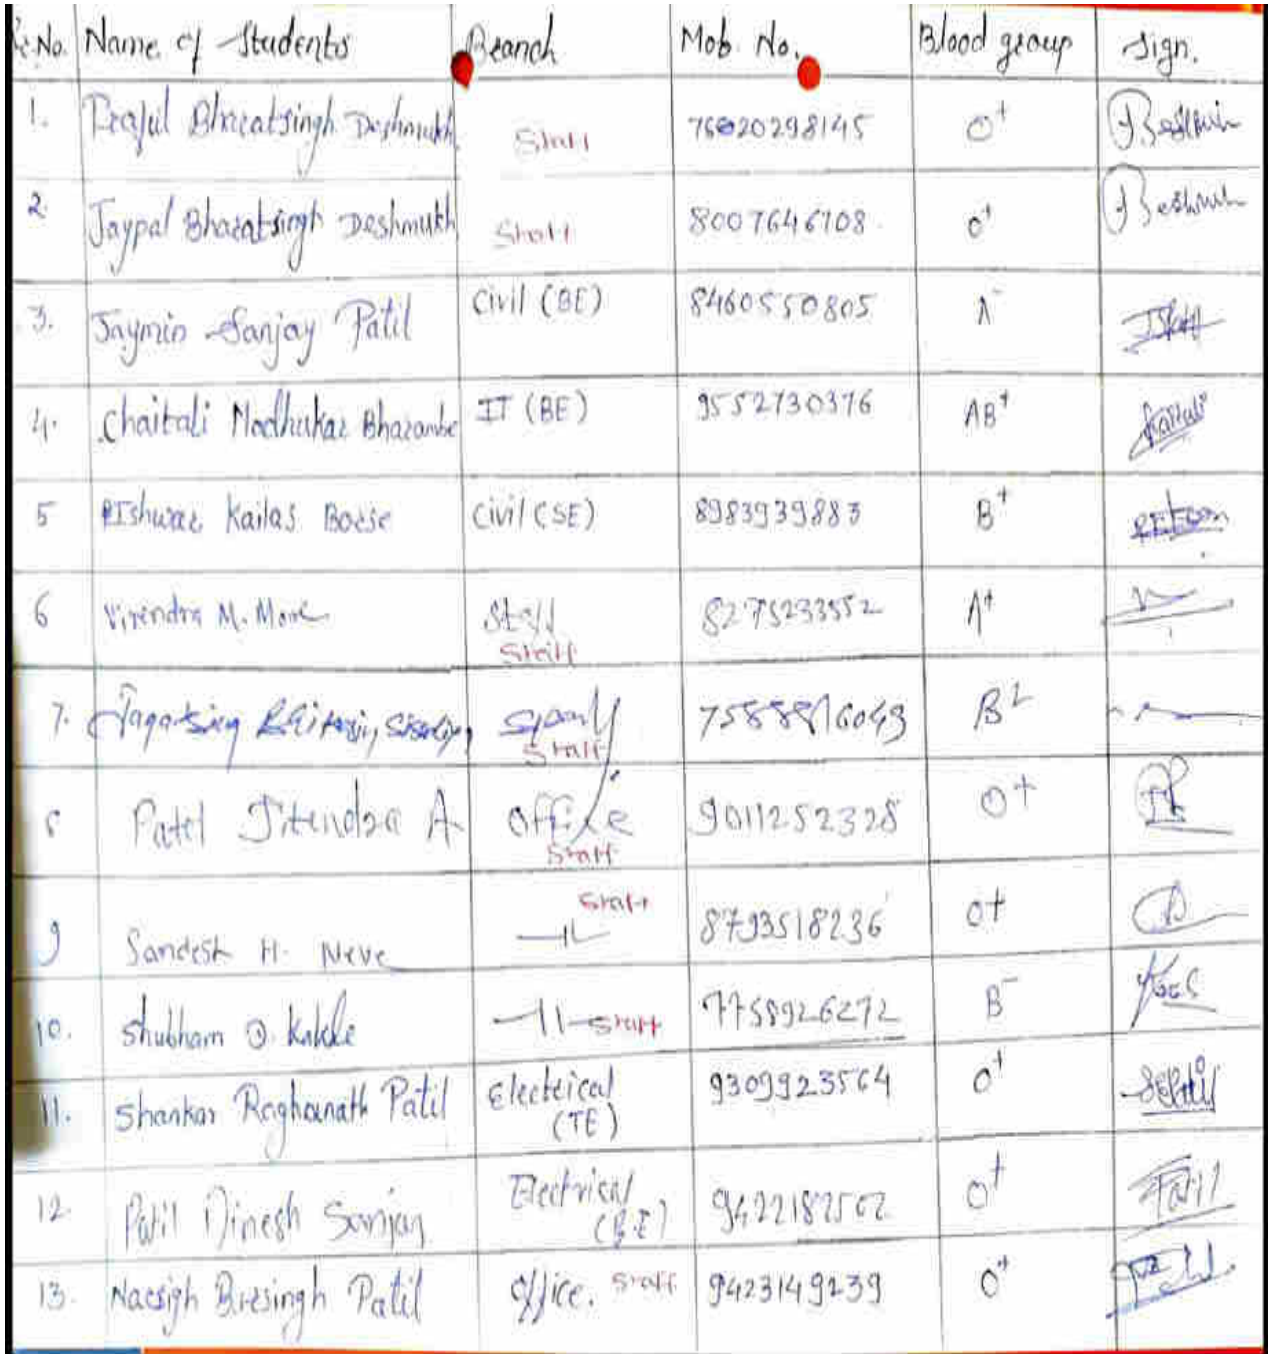 Sr. No. Name of Students Branch Mob. No. Blood group Sign.
1. Prafful Bharatsingh Deshmukh Staff 76020298145 O+
2. Jaypal Bharatsingh Deshmukh Staff 8007646708 O+
3. Jaymin Sanjay Patil Civil (BE) 8460550805 A-
4. Chaitali Madhukar Bharambe IT (BE) 9552730376 AB+
5 Ishwar Kailas Borse Civil (SE) 8983939883 B+
6 Virendra M. More Staff 8275233552 A+
Staff
7. Staff B
8 Patel Jitendra A Office 9011252328 O+
Staff
9 Sandesh H. Neve -||- Staff 8793518236 O+
10. Shubham Kakde -||- Staff 7758926272 B-
11. Shankar Raghunath Patil Electrical 9309923564 O+
(TE)
12. Patil Dinesh Sanjay Electrical 9422182562 O+ Patil
(B.E)
13. Narsigh Biresingh Patil Office. Staff 9423149239 O+